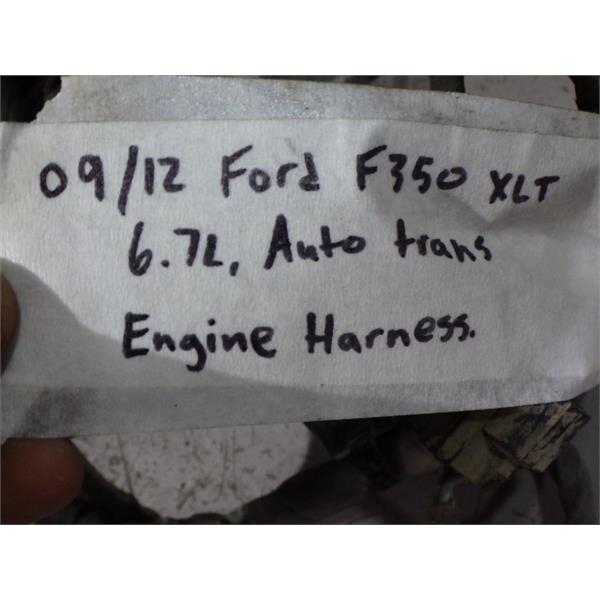 09/12 Ford F350 XLT
6.7L, Auto trans
Engine Harness.